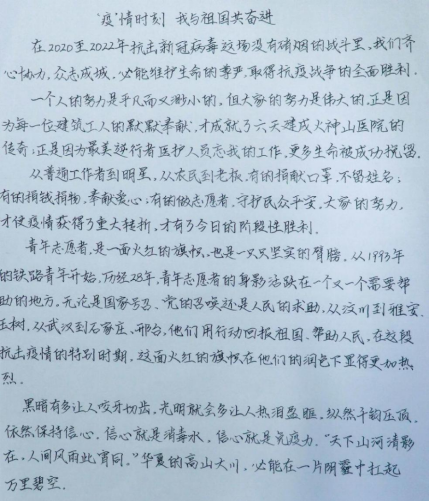 "疫"情时刻 我与祖国共奋进
在2020至2022年抗击新冠病毒这场没有硝烟的战斗里,我们齐
心协力,众志成城,必能维护生命的尊严,取得抗疫战争的全面胜利。
一个人的努力是平凡而又渺小的,但大家的努力是伟大的,正是因
为每一位建筑工人的默默奉献,才成就了六天建成火神山医院的
传奇;正是因为最美逆行者医护人员忘我的工作,更多生命被成功挽留。
从普通工作者到明星,从农民到老板,有的捐献口罩,不留姓名;
有的捐钱捐物,奉献爱心;有的做志愿者,守护民众平安,大家的努力,
才使疫情获得了重大转折,才有了今日的阶段性胜利。
青年志愿者,是一面火红的旗帜,也是一只只坚实的臂膀,从1993年
的铁路青年开始,历经28年,青年志愿者的身影活跃在一个又一个需要帮
助的地方,无论是国家号召、党的召唤还是人民的求助,从汶川到雅安、
玉树,从武汉到石家庄、邢台,他们用行动回报祖国、帮助人民,在这段
抗击疫情的特别时期,这面火红的旗帜在他们的润色下显得更加热
烈。
黑暗有多让人咬牙切齿,光明就会多让人热泪盈眶,纵然千钧压顶,
依然保持信心,信心就是消毒水,信心就是免疫力。"天下山河清影
在,人间风雨此宵同。"华夏的高山大川,必能在一片阴霾中扛起
万里碧空。